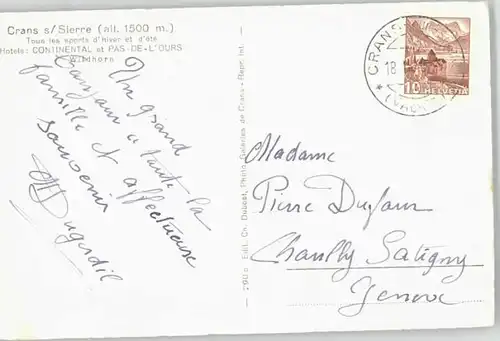 Crans s/Sierre (alt. 1500 m.)
Tous les sports d'hiver et d'été
Hotels: CONTINENTAL et PAS-DE-L'OURS
Wildhorn
Un grand
bonjour à toute la
famille et affectueux
souvenir
Dugerdil
Edit. Ch. Dubost, Photo Galeries de Crans - Repr. int.
CRANS
18
10 HELVETIA
Madame
Pierre Dufour
Chouilly Satigny
Genève